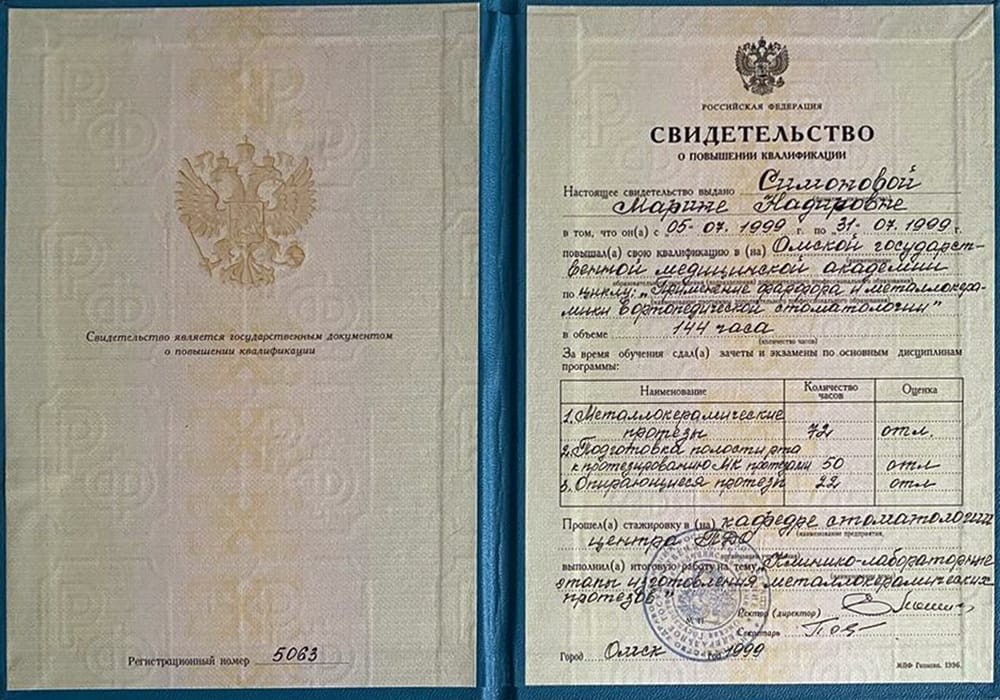 Свидетельство является государственным документом
о повышении квалификации
Регистрационный номер 5063
РОССИЙСКАЯ ФЕДЕРАЦИЯ
СВИДЕТЕЛЬСТВО
О ПОВЫШЕНИИ КВАЛИФИКАЦИИ
Настоящее свидетельство выдано Симоновой
Марине Надировне
в том, что он(а) с 05-07. 1999 г. по 31-07.1999 г.
повышал(а) свою квалификацию в (на) Омской государст-
венной медицинской академии
по циклу: „Применение фарфора и металлокера-
мики в ортопедической стоматологии"
в объеме 144 часа
(количество часов)
За время обучения сдал(а) зачеты и экзамены по основным дисциплинам
программы:
Наименование Количество часов Оценка
1. Металлокерамические
протезы 72 отл.
2. Подготовка полости рта
к протезированию МК протезами 50 отл
3. Опирающиеся протезы 22 отл
Прошел(а) стажировку в (на) кафедре стоматологии
(наименование предприятия,
центра ПДО
выполнил(а) итоговую работу на тему „Клинико-лабораторные
этапы изготовления металлокерамических
протезов"
Ректор (директор)
Секретарь
Город Омск год 1999
МПФ Гознака. 1996.